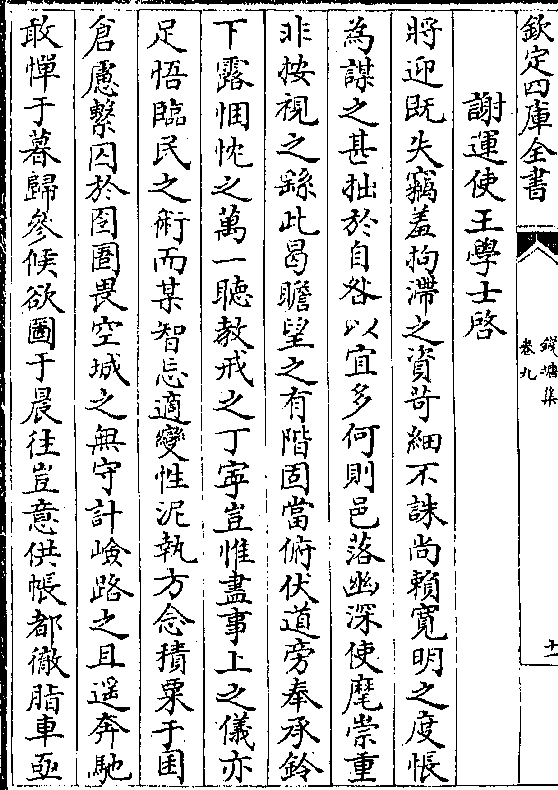 欽定四庫全書
錢塘集
卷九
十一
謝運使王學士啓
將迎既失竊羞拘滯之資苛細不誅尚賴寛明之度悵
為謀之甚拙於自咎以宜多何則邑落幽深使麾崇重
非按視之繇此曷瞻望之有階固當俯伏道旁奉承鈴
下露悃忱之萬一聴教戒之丁寜豈惟盡事上之儀亦
足悟臨民之術而某智忘適變性泥執方念積粟于囷
倉慮繫囚於囹圄畏空城之無守計嶮路之且遥奔馳
敢憚于暮歸參候欲圖于晨往豈意供帳都徹脂車亟